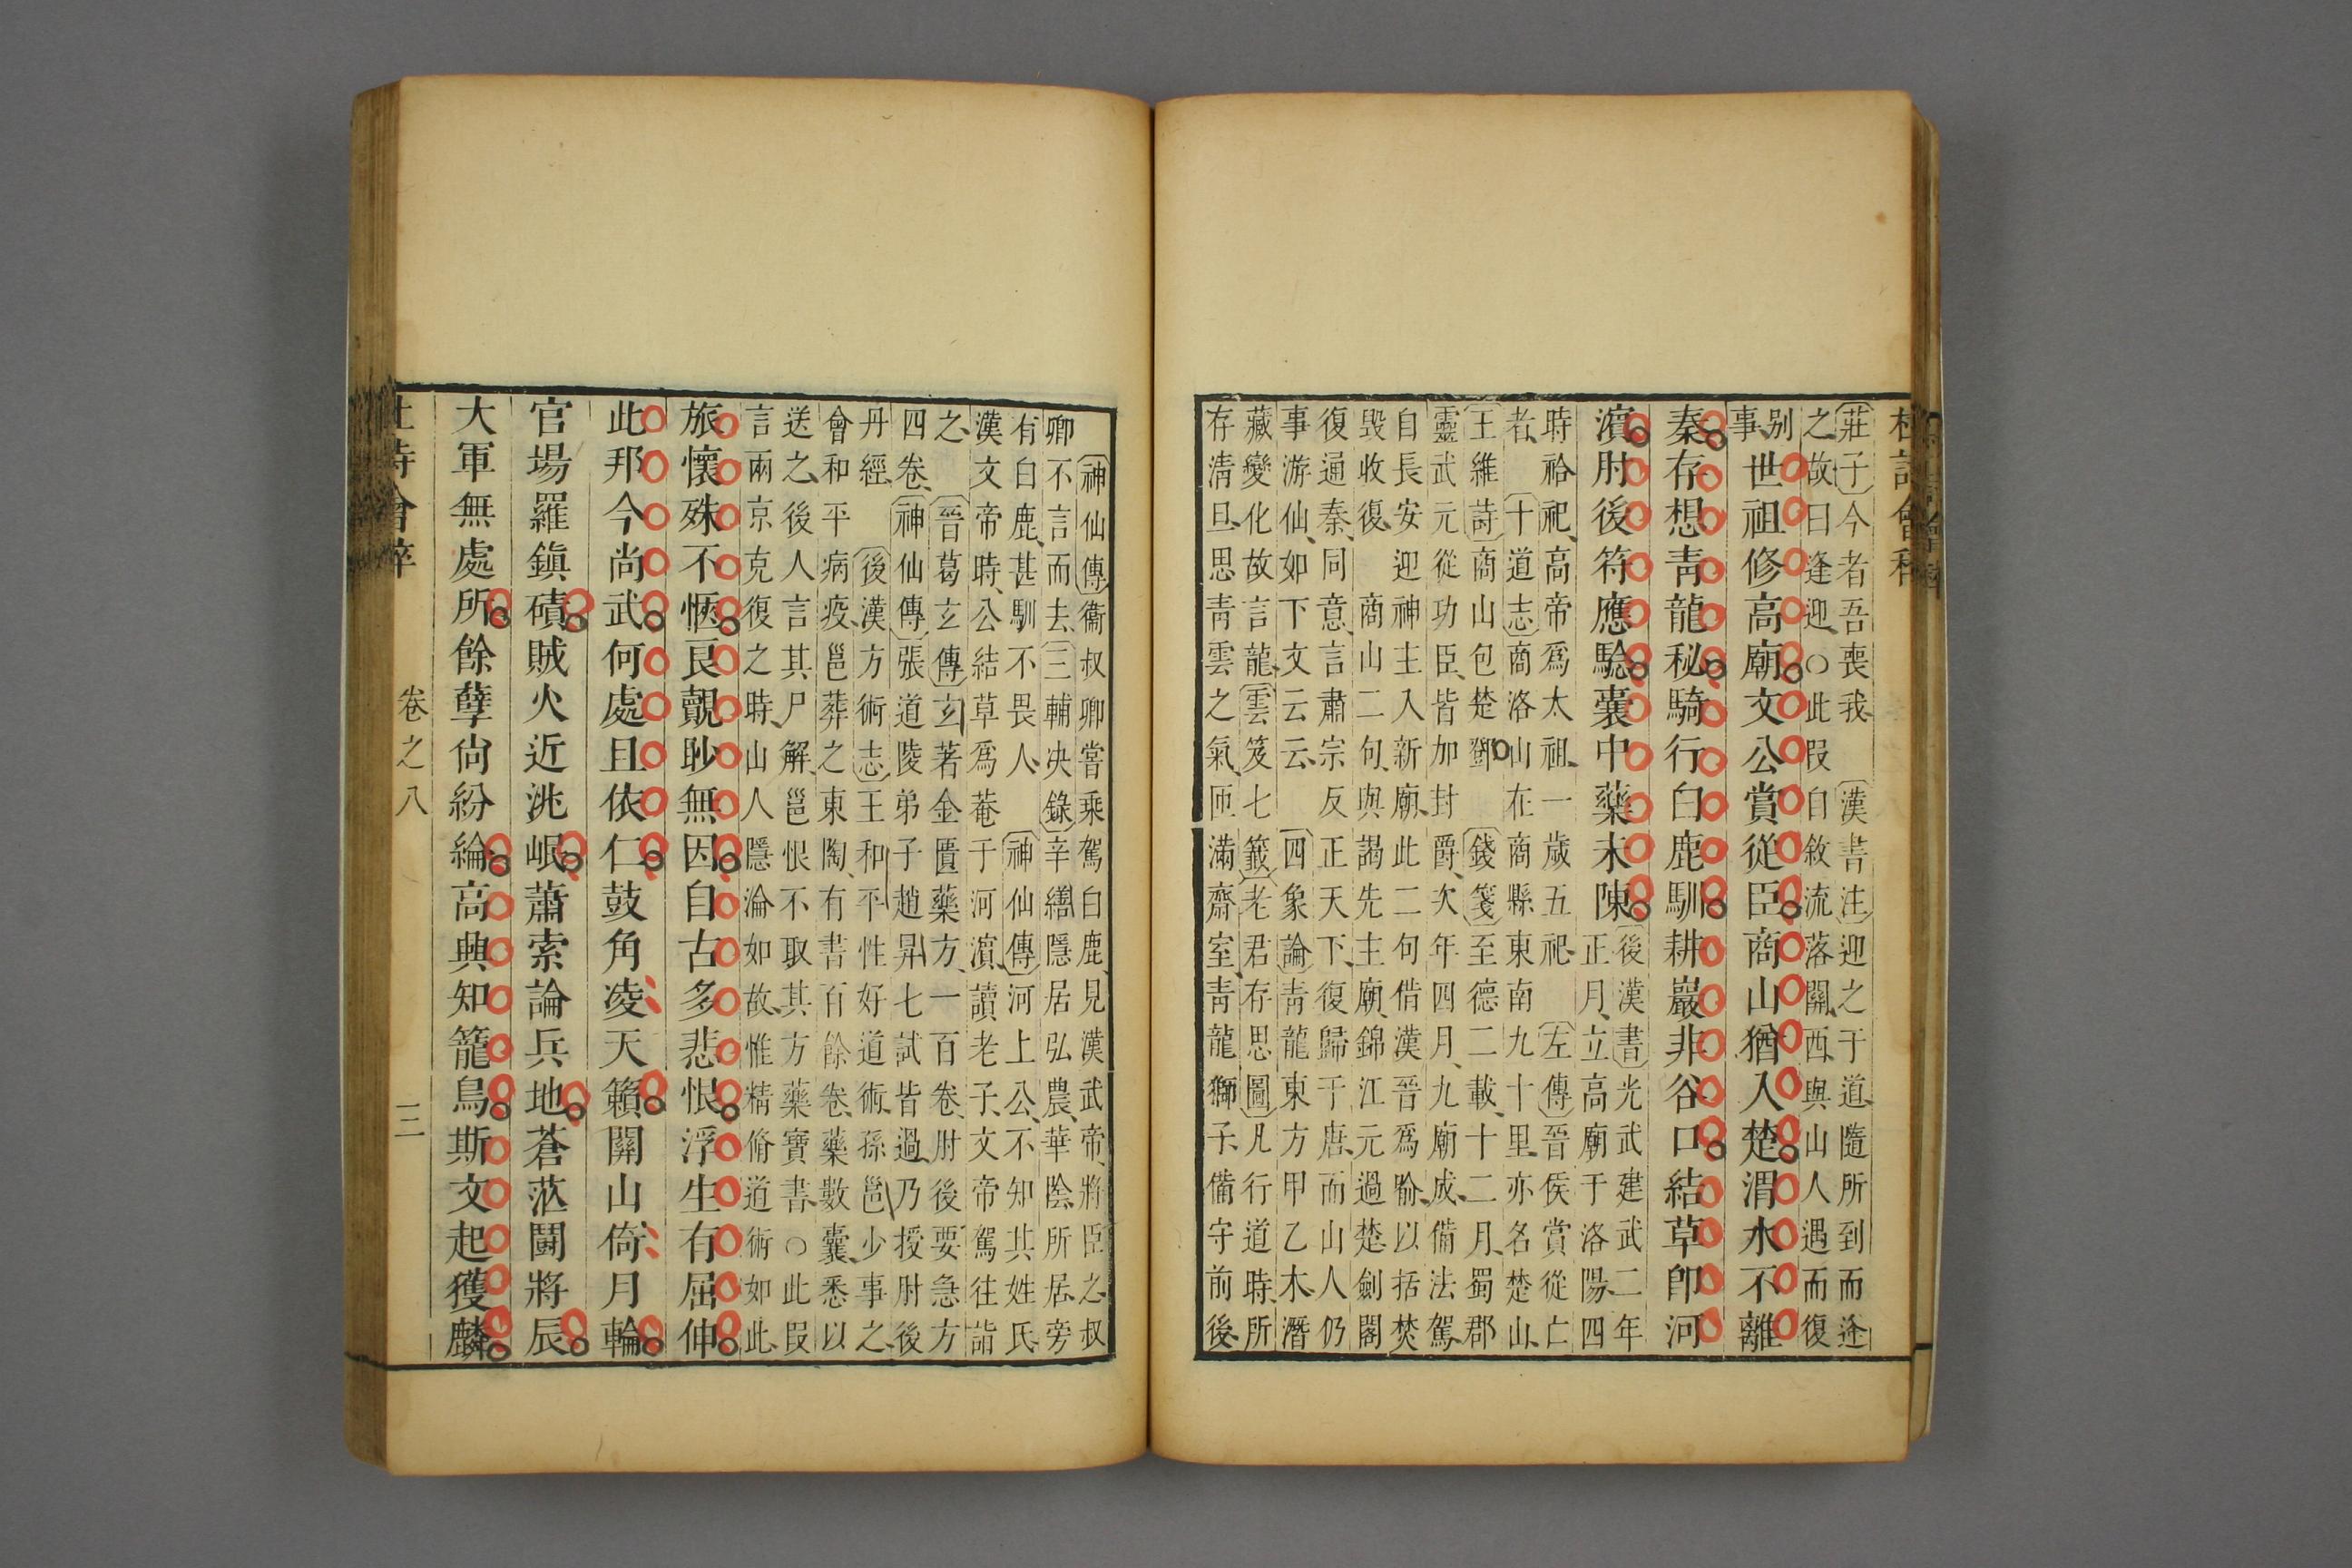 杜詩會稡
莊子今者吾喪我　漢書注迎之于道隨所到而逢
之故曰逢迎○此叚自敘流落關西與山人遇而復
别
事
世祖修高廟文公賞從臣商山猶入楚渭水不離
秦存想靑龍秘騎行白鹿馴耕巖非谷口結草卽河
濵肘後符應驗囊中藥未陳
後漢書光武建武二年
正月立高廟于洛陽四
時祫祀高帝爲太祖一歲五祀　左傳晉侯賞從亡
者　十道志商洛山在商縣東南九十里亦名楚山
王維詩商山包楚鄧　錢箋至德二載十二月蜀郡
靈武元從功臣皆加封爵次年四月九廟成備法駕
自長安迎神主入新廟此二句借漢晉爲喻以括焚
毀收復　商山二句與謁先主廟錦江元過楚劍閣
復通秦同意言肅宗反正天下復歸于唐而山人仍
事游仙如下文云云　四象論靑龍東方甲乙木潛
藏變化故言龍雲笈七籤老君存思圖凡行道時所
存淸旦思靑雲之氣匝滿齋室靑龍獅子備守前後
神仙傳衞叔卿嘗乘駕白鹿見漢武帝將臣之叔
卿不言而去三輔决錄辛繕隱居弘農華陰所居旁
有白鹿甚馴不畏人　神仙傳河上公不知其姓氏
漢文帝時公結草爲菴于河濵讀老子文帝駕往詣
之　晉葛玄傳玄著金匱藥方一百卷肘後要急方
四卷神仙傳張道陵弟子趙昇七試皆過乃授肘後
丹經　後漢方術志王和平性好道術孫邕少事之
會和平病疫邕葬之東陶有書百餘卷藥數囊悉以
送之後人言其尸解邕恨不取其方藥寶書○此叚
言兩京克復之時山人隱淪如故惟精脩道術如此
旅懷殊不愜良覿眇無因自古多悲恨浮生有屈伸
此邦今尚武何處且依仁鼓角凌天籟關山倚月輪
官場羅鎭磧賊火近洮岷蕭索論兵地蒼茫鬭將辰
大軍無處所餘孽尙紛綸高興知籠鳥斯文起獲麟
卷之八
三